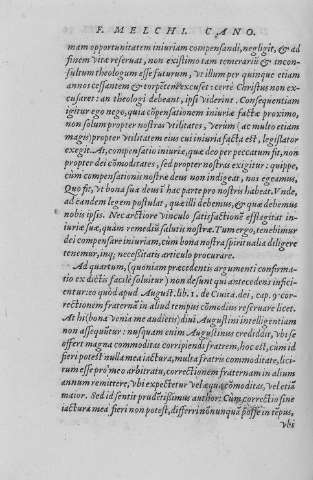 F. MELCHI. CANO.
mam opportunitatem iniuriam compensandi, negligit, & ad
finem vitæ reseruat, non existimo tam temerariũ & incon-
sultum theologum esse futurum, vt illum per quinque etiam
annos cessantem & torpẽtem excuset: certè Christus non ex-
cusaret: an theologi debeant, ipsi viderint. Consequentiam
igitur ego nego, quia cõpensationem iniuriæ factæ proximo,
non solum propter nostras vtilitates, verùm (ac multo etiam
magis) propter vtilitatem eius cui iniuria facta est, legislator
exegit. At, compensatio iniuriæ, quæ deo per peccatum fit, non
propter dei cõmoditates, sed propter nostras exigitur: quippe,
cùm compensationis nostræ deus non indigeat, nos egeamus.
Quo fit, vt bona suæ deus ĩ hac parte pro nostris habeat. Vnde,
ad eandem legem postulat, quæ illi debemus, & quæ debemus
nobis ipsis. Nec arctiore vinculo satisfactionẽ efflagitat in-
iuriæ suæ, quàm remediũ salutis nostræ. Tum ergo, tenebimur
dei compensare iniuriam, cùm bona nostra spiritualia diligere
tenemur, inq; necessitatis articulo procurare.
Ad quartum, (quoniam præcedentis argumenti confirma-
tio ex dictis facilè soluitur) non desunt qui antecedens inficien-
tur: eo quòd apud August. lib. 1. de Ciuita. dei, cap. 9. cor-
rectionem fraternã in aliud tempus cõmodius reseruare licet.
At hi (bona venia me audietis) diui Augustini intelligentiam
non assequũtur: nusquam enim Augustinus credidit, vbi se
offert magna commoditas corripiendi fratrem, hoc est, cùm id
fieri potest nulla mea iactura, multa fratris commoditate, lici-
tum esse pro meo arbitratu, correctionem fraternam in alium
annum remittere, vbi expectetur vel æqua cõmoditas, vel etiã
maior. Sed id sentit prudẽtissimus author: Cùm correctio sine
iactura mea fieri non potest, differri nõnunquã posse in tẽpus,
vbi